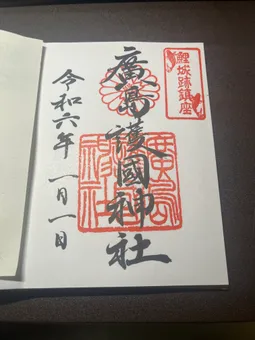 鯉城跡鎮座
廣島護國神社
令和六年 一月一日